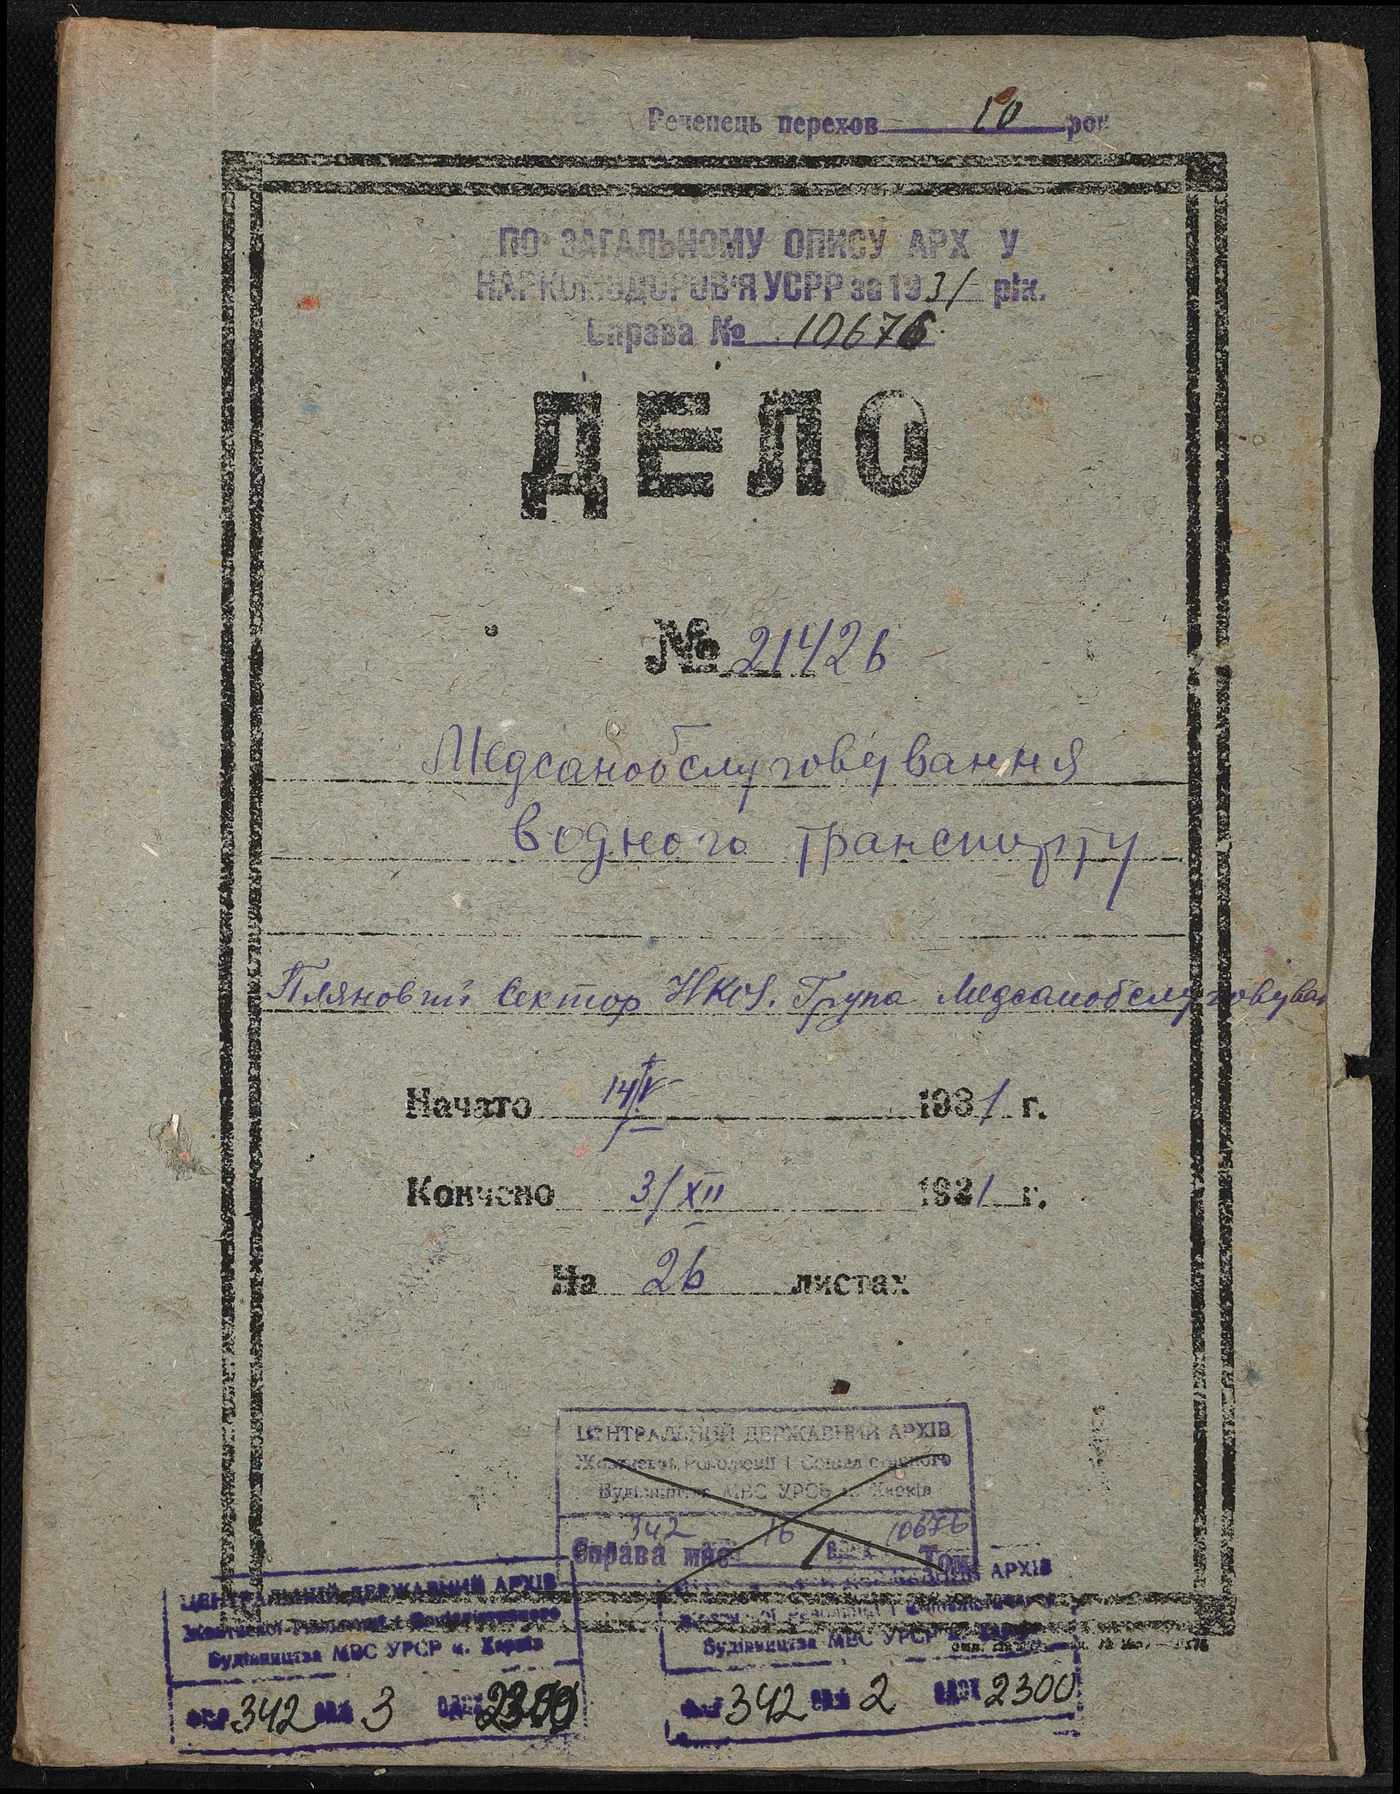 Реченець перехов 10 рок
ПО ЗАГАЛЬНОМУ ОПИСУ АРХ У
НАРКОМЗДОРОВ'Я УСРР за 1931 рік.
Справа № 10676
ДЕЛО
№ 21426
Медсанобслуговування
водного транспорту
Пляновий Сектор НКОЗ. Група Медсанобслуговуван
Начато 14/IV 1931 г.
Кончено 3/XII 1931 г.
На 26 листах
ЦЕНТРАЛЬНИЙ ДЕРЖАВНИЙ АРХІВ
Жовтневої Революції і Соціалістичного
Будівництва МВС УРСР м. Харків
342 16 10676
Справа Том
ЦЕНТРАЛЬНИЙ ДЕРЖАВНИЙ АРХІВ
Жовтневої Революції і Соціалістичного
Будівництва МВС УРСР м. Харків
342 3 2300
АРХІВ
Жовтневої Революції і
Будівництва МВС УРСР м. Харків
342 2 2300